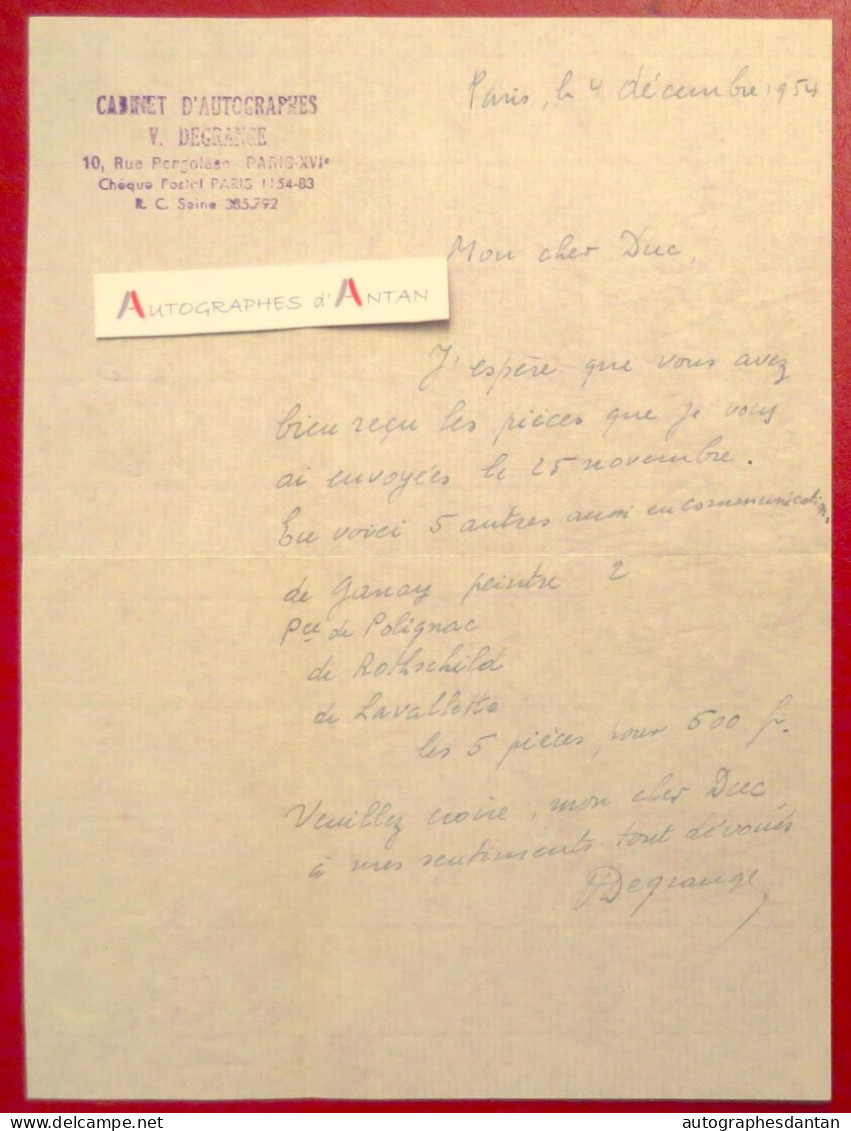 CABINET D'AUTOGRAPHES
V. DEGRANGE
10, Rue Pergolèse - PARIS-XVIe
Chèque Postal PARIS 1154-83
R. C. Seine 385.792
Paris, le 4 décembre 1954
Mon cher Duc,
AUTOGRAPHES d'ANTAN
J'espère que vous avez
bien reçu les pièces que je vous
ai envoyées le 25 novembre.
En voici 5 autres aussi en communication,
de Ganay peintre 2
Pce de Polignac
de Rothschild
de Lavallette
les 5 pièces pour 500 fr.
Veuillez croire, mon cher Duc
à mes sentiments tout dévoués
VDegrange
autographesdantan
delcampe.net